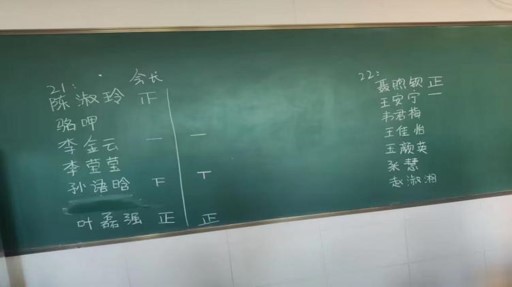 21: 会长
陈淑玲 正
骆呷
李金云 一 一
李莹莹
孙语晗 下 丅
叶磊强 正 正
22:
聂煦钦 正
王安宁 一
韦君梅
王佳怡
王颜英
米慧
赵淑湘